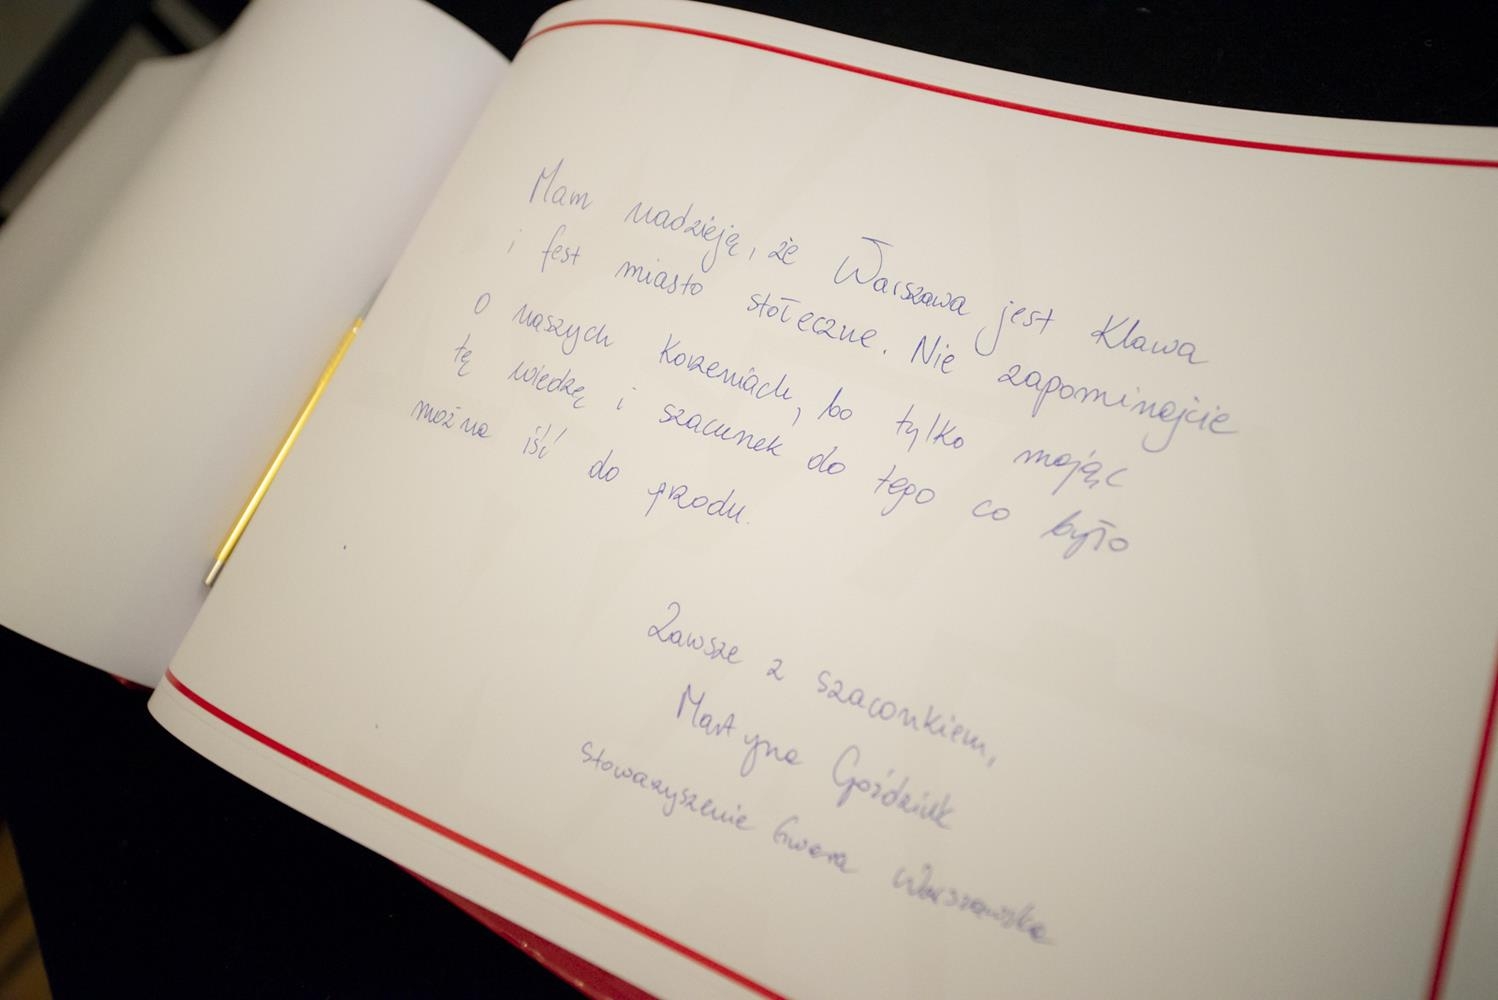 Mam nadzieję, że Warszawa jest Klawa
i fest miasto stołeczne. Nie zapominajcie
o naszych korzeniach, bo tylko mając
tę wiedzę i szacunek do tego co było
można iść do przodu.
Zawsze z szacunkiem,
Martyna Goździuk
Stowarzyszenie Gwara Warszawska